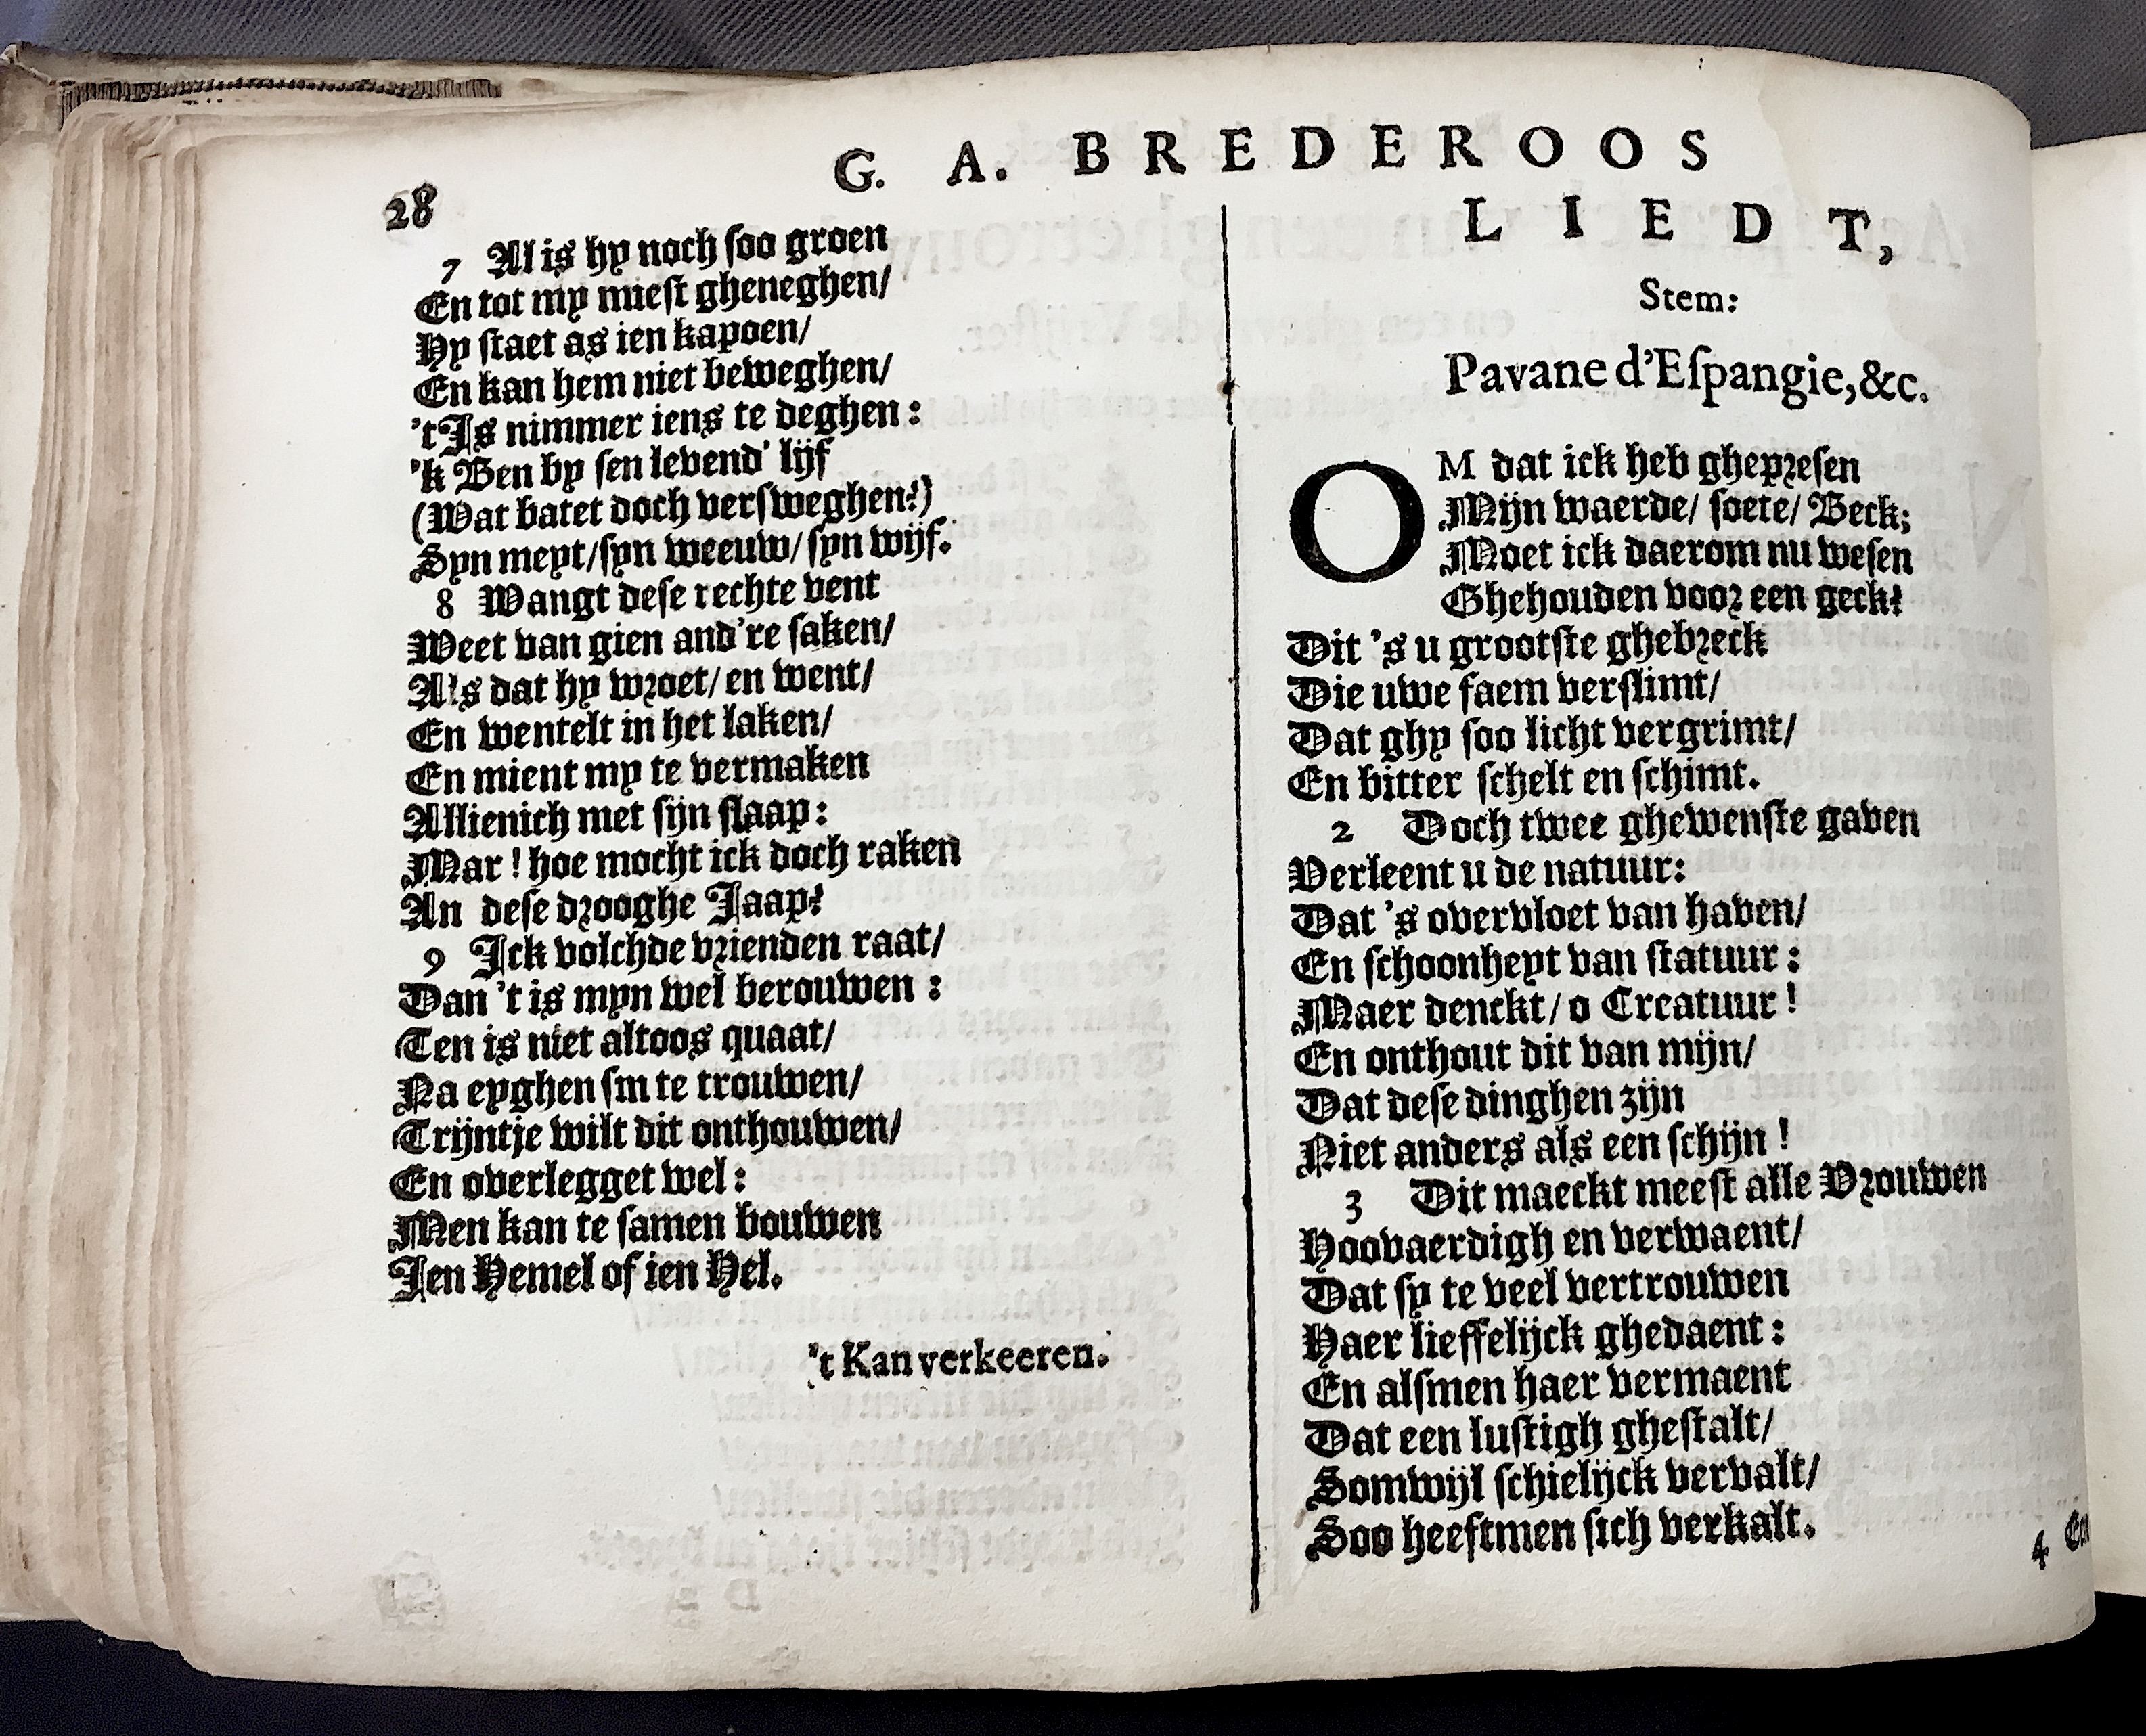 G. A. BREDEROOS
28
7 Al is hy noch soo groen
En tot my miest gheneghen/
Hy staet as ien kapoen/
En kan hem niet beweghen/
't Is nimmer iens te deghen:
'k Ben by sen levend' lijf
(Wat batet doch versweghen?)
Syn meyt/syn weeuw/syn wijf.
8 Wangt dese rechte vent
Weet van gien and're saken/
Als dat hy wroet/ en went/
En wentelt in het laken/
En mient my te vermaken
Allienich met sijn slaap:
Mar ! hoe mocht ick doch raken
An dese drooghe Jaap?
9 Ick volchde vrienden raat/
Dan 't is myn wel berouwen :
Ten is niet altoos quaat/
Na eyghen sin te trouwen/
Trijntje wilt dit onthouwen/
En overlegget wel:
Men kan te samen bouwen
Ien Hemel of ien Hel.
't Kan verkeeren.
LIEDT,
Stem:
Pavane d'Espangie, &c.
OM dat ick heb ghepresen
Mijn waerde/ soete/ Beck;
Moet ick daerom nu wesen
Ghehouden voor een geck?
Dit 's u grootste ghebreck
Die uwe faem verslimt/
Dat ghy soo licht vergrimt/
En bitter schelt en schimt.
2 Doch twee ghewenste gaven
Verleent u de natuur:
Dat 's overvloet van haven/
En schoonheyt van statuur :
Maer denckt/ o Creatuur !
En onthout dit van mijn/
Dat dese dinghen zijn
Niet anders als een schijn !
3 Dit maeckt meest alle Vrouwen
Hoovaerdigh en verwaent/
Dat sy te veel vertrouwen
Haer lieffelijck ghedaent :
En alsmen haer vermaent
Dat een lustigh ghestalt/
Somwijl schielijck vervalt/
Soo heeftmen sich verkalt.
4